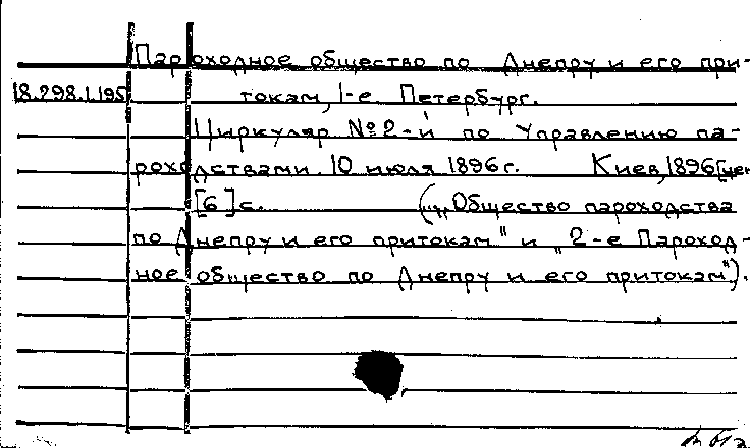 Пароходное общество по Днепру и его при-
18.298.1.195
токам, 1-е Петербург.
Циркуляр №2-й по Управлению па-
роходствами. 10 июля 1896 г. Киев, 1896
[6] с. („Общество пароходства
по Днепру и его притокам" и „2-е Пароход-
ное общество по Днепру и его притокам").